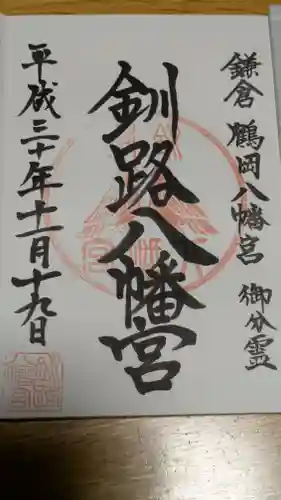 鎌倉 鶴岡八幡宮 御分霊
釧路八幡宮
平成三十年十一月十九日